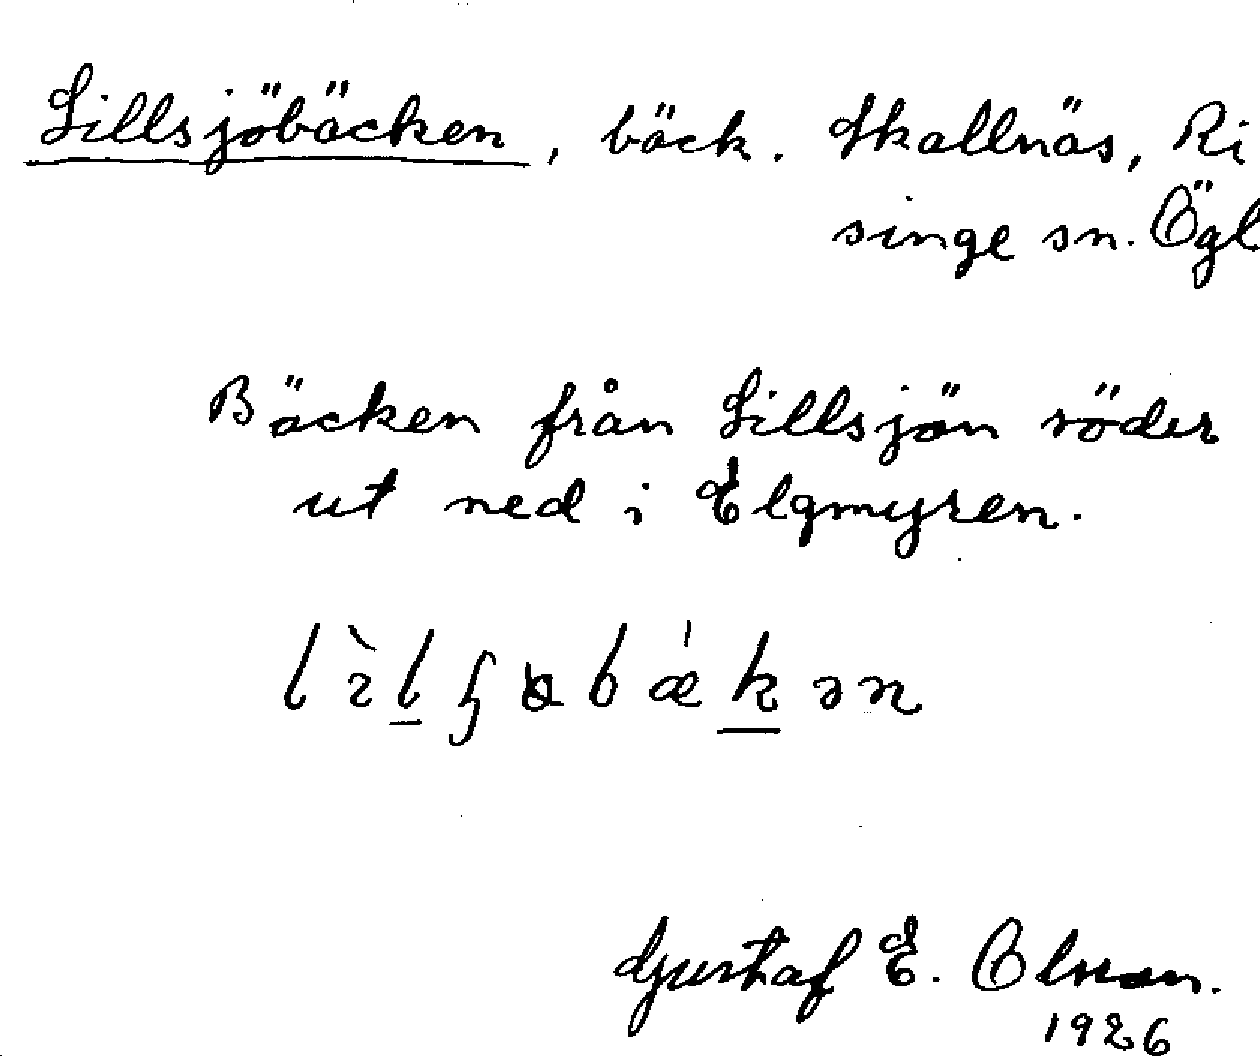 Lillsjöbäcken, bäck. Skallnäs, Ri
singe sn. Ögl
Bäcken från Lillsjön söder
ut ned i Elgmyren.
Gustaf E. Olsson.
1926